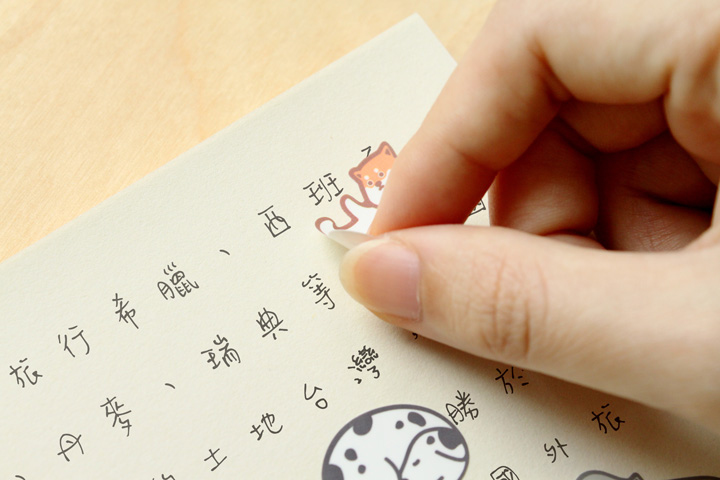 旅行希臘、西班
丹麥、瑞典等
土地台灣勝於
國外旅